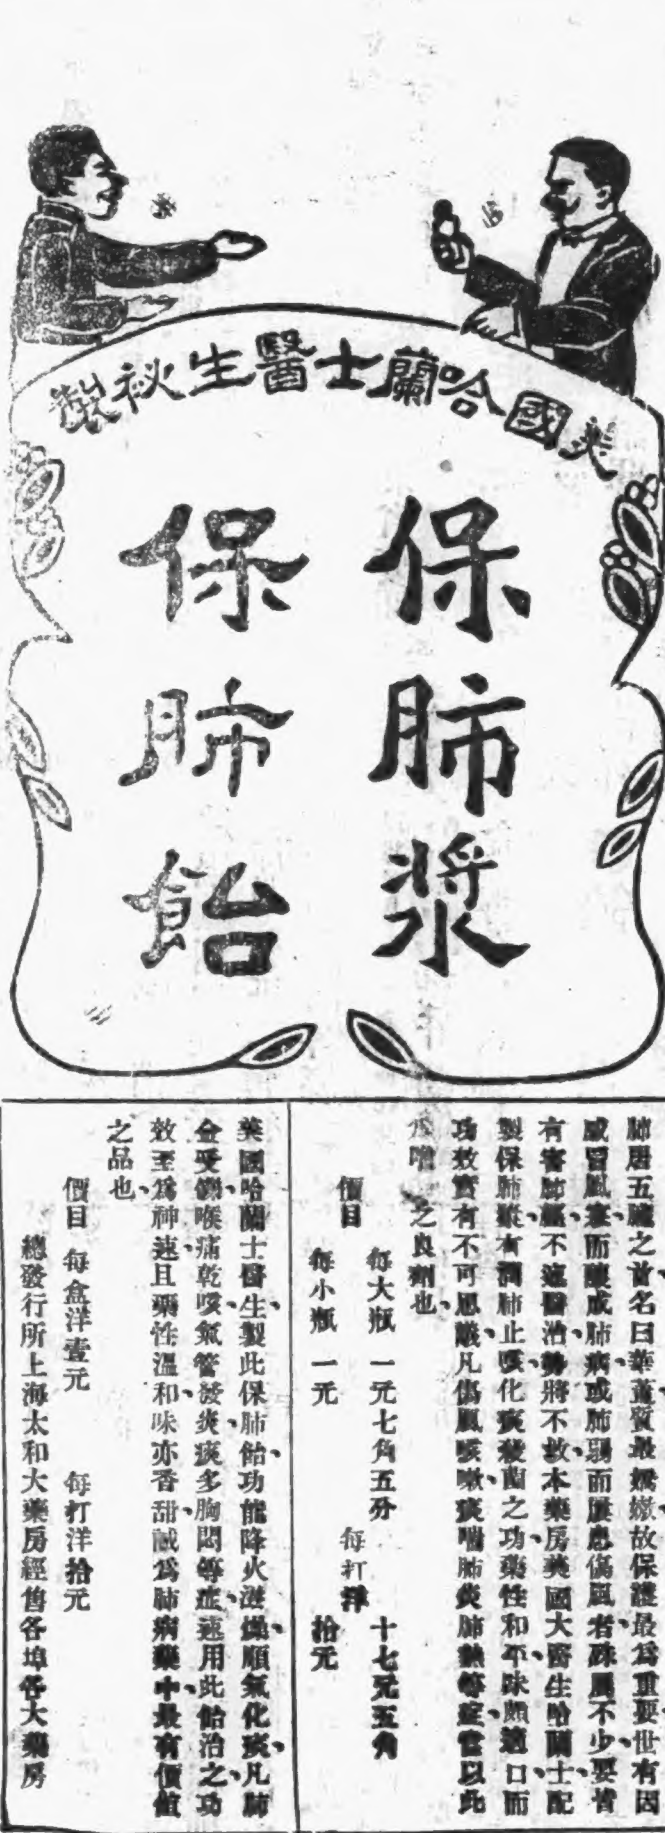 美國哈蘭士醫生秘製
保肺漿
保肺飴
肺居五臟之首名曰華蓋質最嬌嫩故保護最爲重要世有因
感冒風寒而釀成肺病或肺弱而屢患傷風者殊屬不少要皆
有害肺經不速醫治勢將不救本藥房美國大醫生哈蘭士配
製保肺漿有潤肺止咳化痰殺菌之功藥性和平味頗適口而
功效實有不可思議凡傷風咳嗽痰喘肺炎肺熱等症當以此
之良劑也
價目 每大瓶 一元七角五分 每打洋 十七元五角
每小瓶 一元 拾元
美國哈蘭士醫生製此保肺飴功能降火滋燥順氣化痰凡肺
金受鑠喉痛乾咳氣管發炎痰多胸悶等症速用此飴治之功
效至爲神速且藥性溫和味亦香甜誠爲肺病藥中最有價值
之品也
價目 每盒洋壹元 每打洋拾元
總發行所上海太和大藥房經售各埠各大藥房